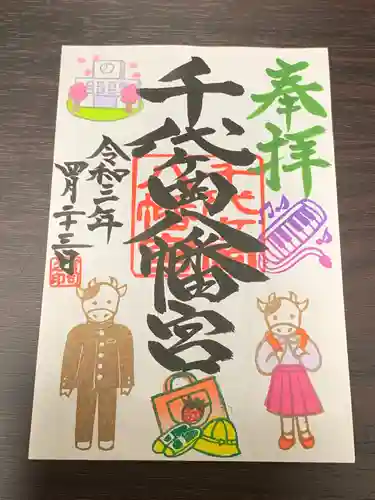 奉拝
千代ケ岡八幡宮
令和三年
四月二十三日